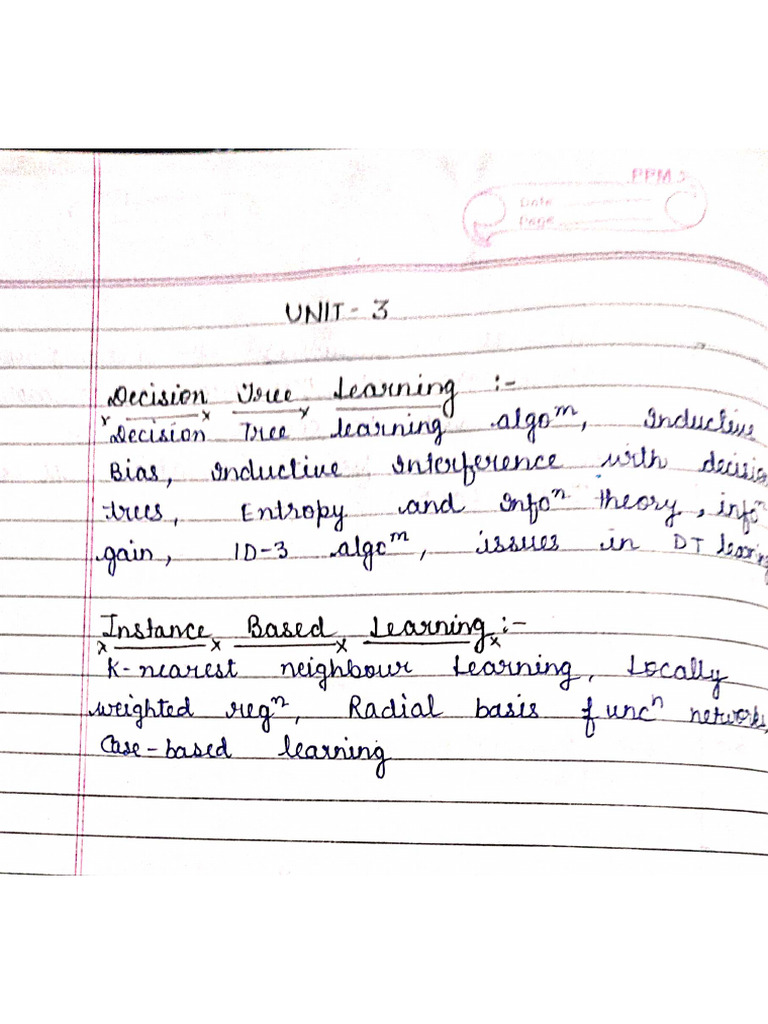 PPM
Date
Page
UNIT - 3
Decision Tree Learning :-
Decision Tree learning algoᵐ, Inductive
Bias, Inductive Interference with decision
trees, Entropy and Infoⁿ theory, infoⁿ
gain, ID-3 algoᵐ, issues in DT learning
Instance Based Learning :-
K-nearest neighbour Learning, Locally
weighted regⁿ, Radial basis funcⁿ networks,
Case-based learning